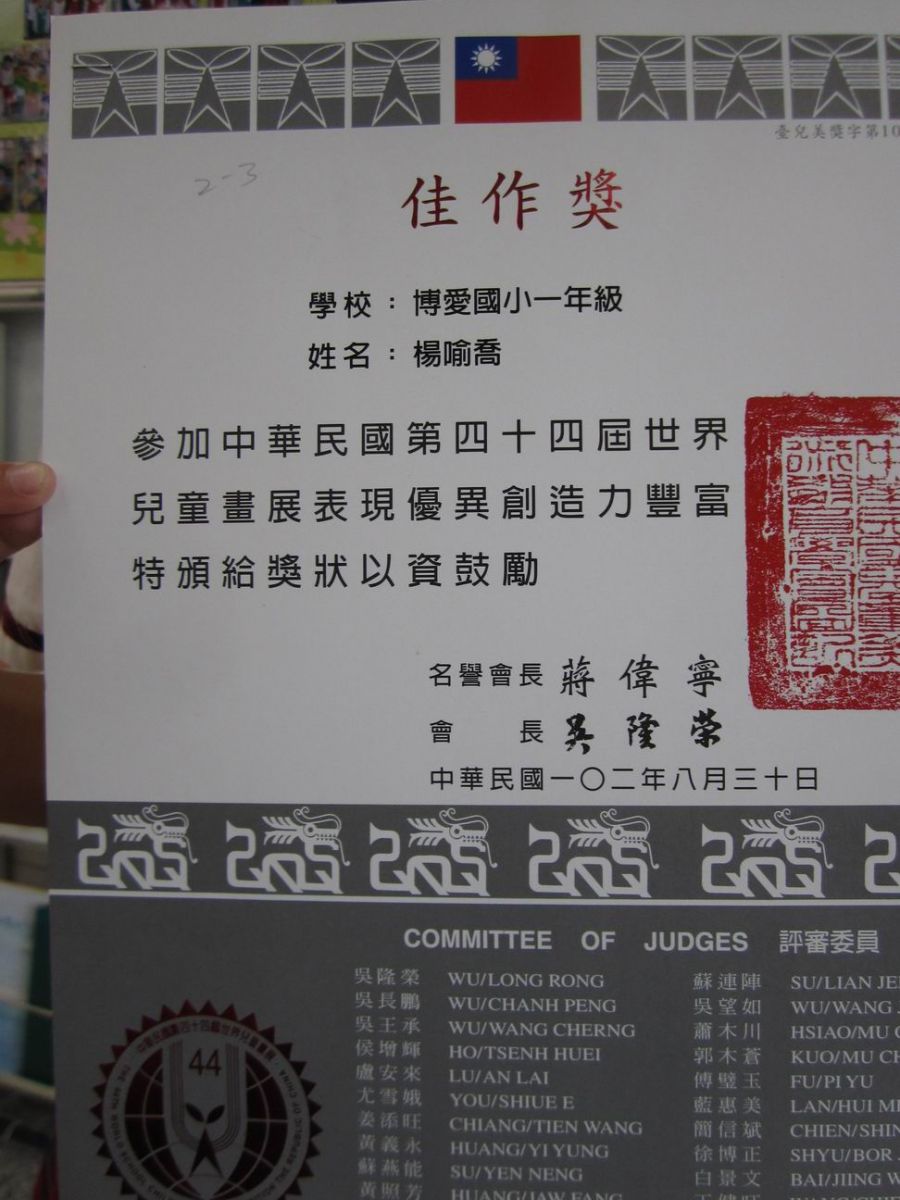 臺兒美獎字第10
2-3
佳作獎
學校：博愛國小一年級
姓名：楊喻喬
參加中華民國第四十四屆世界
兒童畫展表現優異創造力豐富
特頒給獎狀以資鼓勵
名譽會長 蔣偉寧
會長 吳隆榮
中華民國一〇二年八月三十日
COMMITTEE OF JUDGES 評審委員
吳隆榮 WU/LONG RONG 蘇連陣 SU/LIAN JE
吳長鵬 WU/CHANH PENG 吳望如 WU/WANG
吳王承 WU/WANG CHERNG 蕭木川 HSIAO/MU
侯增輝 HO/TSENH HUEI 郭木蒼 KUO/MU CH
盧安來 LU/AN LAI 傅璧玉 FU/PI YU
尤雪娥 YOU/SHIUE E 藍惠美 LAN/HUI ME
姜添旺 CHIANG/TIEN WANG 簡信斌 CHIEN/SHIN
黃義永 HUANG/YI YUNG 徐博正 SHYU/BOR
蘇燕能 SU/YEN NENG 白景文 BAI/JIING W
黃照芳 HUANG/JAW FANG
44